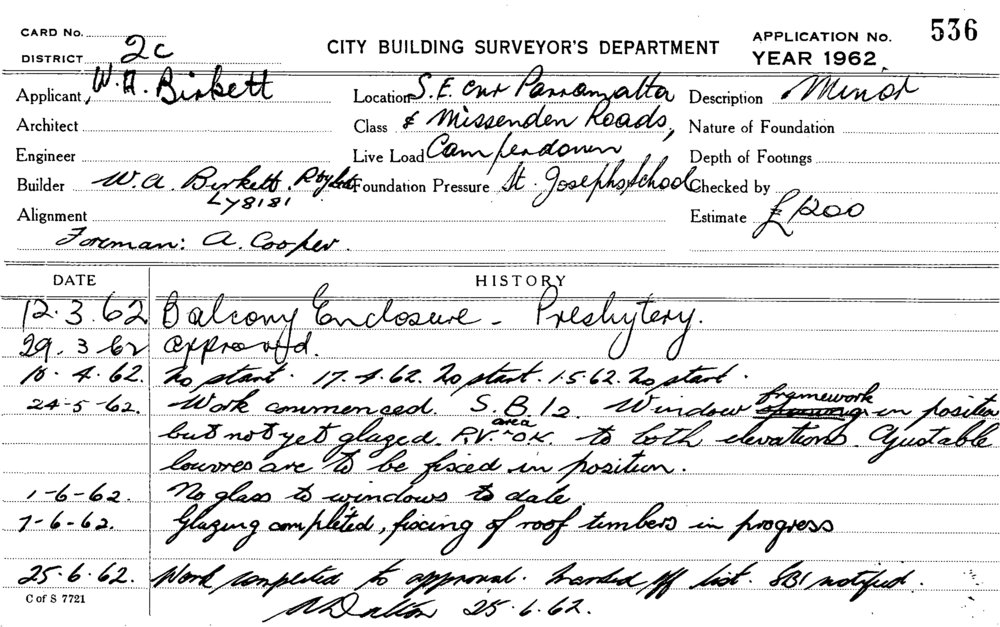 CARD No.
DISTRICT 2c
CITY BUILDING SURVEYOR'S DEPARTMENT
APPLICATION No. 536
YEAR 1962
Applicant W.A. Birkett
Location S.E. cnr Parramatta
Description Minor
Architect
Class & Missenden Roads,
Nature of Foundation
Engineer
Live Load Camperdown
Depth of Footings
Builder W.A. Birkett.
Foundation Pressure St. Josephs School
Checked by
LY8181
Alignment
Estimate £1200
Foreman: A. Cooper.
DATE HISTORY
12.3.62 Balcony Enclosure - Presbytery.
29.3-62 Approved.
10.4.62. No start. 17-4-62. No start. 1.5.62. No start.
24-5-62. Work commenced. S.B.12. Window framework in position
but not yet glazed. P.V. area OK. to both elevations. Ajustable
louvres are to be fixed in position.
1-6-62. No glass to windows to date
7-6-62. Glazing completed, fixing of roof timbers in progress
25.6.62. Work completed to approval. handed off list. SBI notified.
Dalton 25.6.62.
C of S 7721